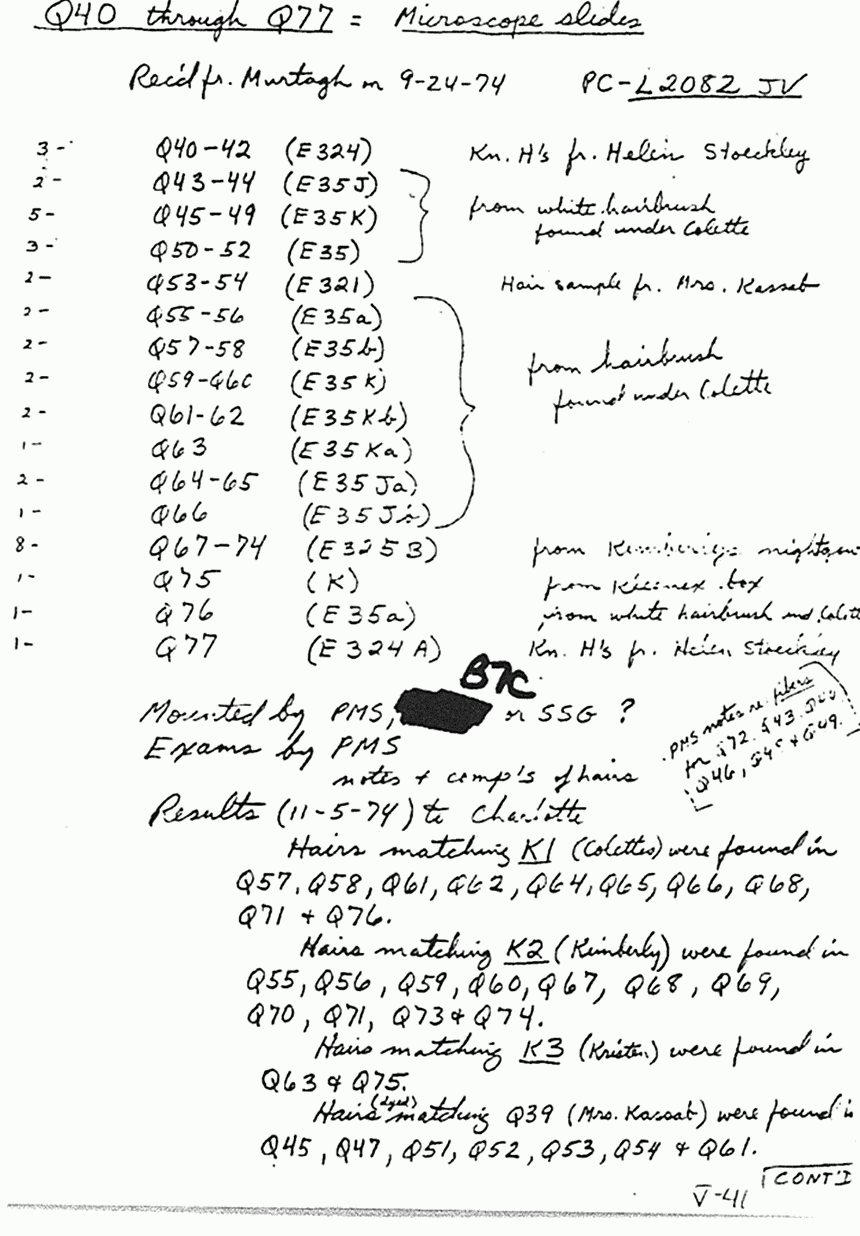 Q40 through Q77 = Microscope slides
Rec'd fr. Murtagh on 9-24-74 PC-L2082 JV
3- Q40-42 (E324) Kn. H's fr. Helen Stoeckley
2- Q43-44 (E35J)
5- Q45-49 (E35K) from white hairbrush
found under Colette
3- Q50-52 (E35)
2- Q53-54 (E321) Hair sample fr. Mrs. Kassab
2- Q55-56 (E35a)
2- Q57-58 (E35b)
2- Q59-Q60 (E35K) from hairbrush
found under Colette
2- Q61-62 (E35Kb)
1- Q63 (E35Ka)
2- Q64-65 (E35Ja)
1- Q66
8- Q67-74 (E325B) from Kimberlys
1- Q75 (K) from Kleenex box
1- Q76 (E35a) from white hairbrush und. Colette
1- Q77 (E324A) Kn. H's fr. Helen Stoeckley
B7C
Mounted by PMS, or SSG ?
PMS notes re: fibers
for Q72, Q43,
Q46, Q49.
Exams by PMS
notes + comp's of hairs
Results (11-5-74) to Charlotte
Hairs matching K1 (Colettes) were found in
Q57, Q58, Q61, Q62, Q64, Q65, Q66, Q68,
Q71 + Q76.
Hairs matching K2 (Kimberly) were found in
Q55, Q56, Q59, Q60, Q67, Q68, Q69,
Q70, Q71, Q73 & Q74.
Hairs matching K3 (Kristen) were found in
Q63 & Q75.
(dyed)
Hairs matching Q39 (Mrs. Kassab) were found in
Q45, Q47, Q51, Q52, Q53, Q54 & Q61.
CONT'D
V-41